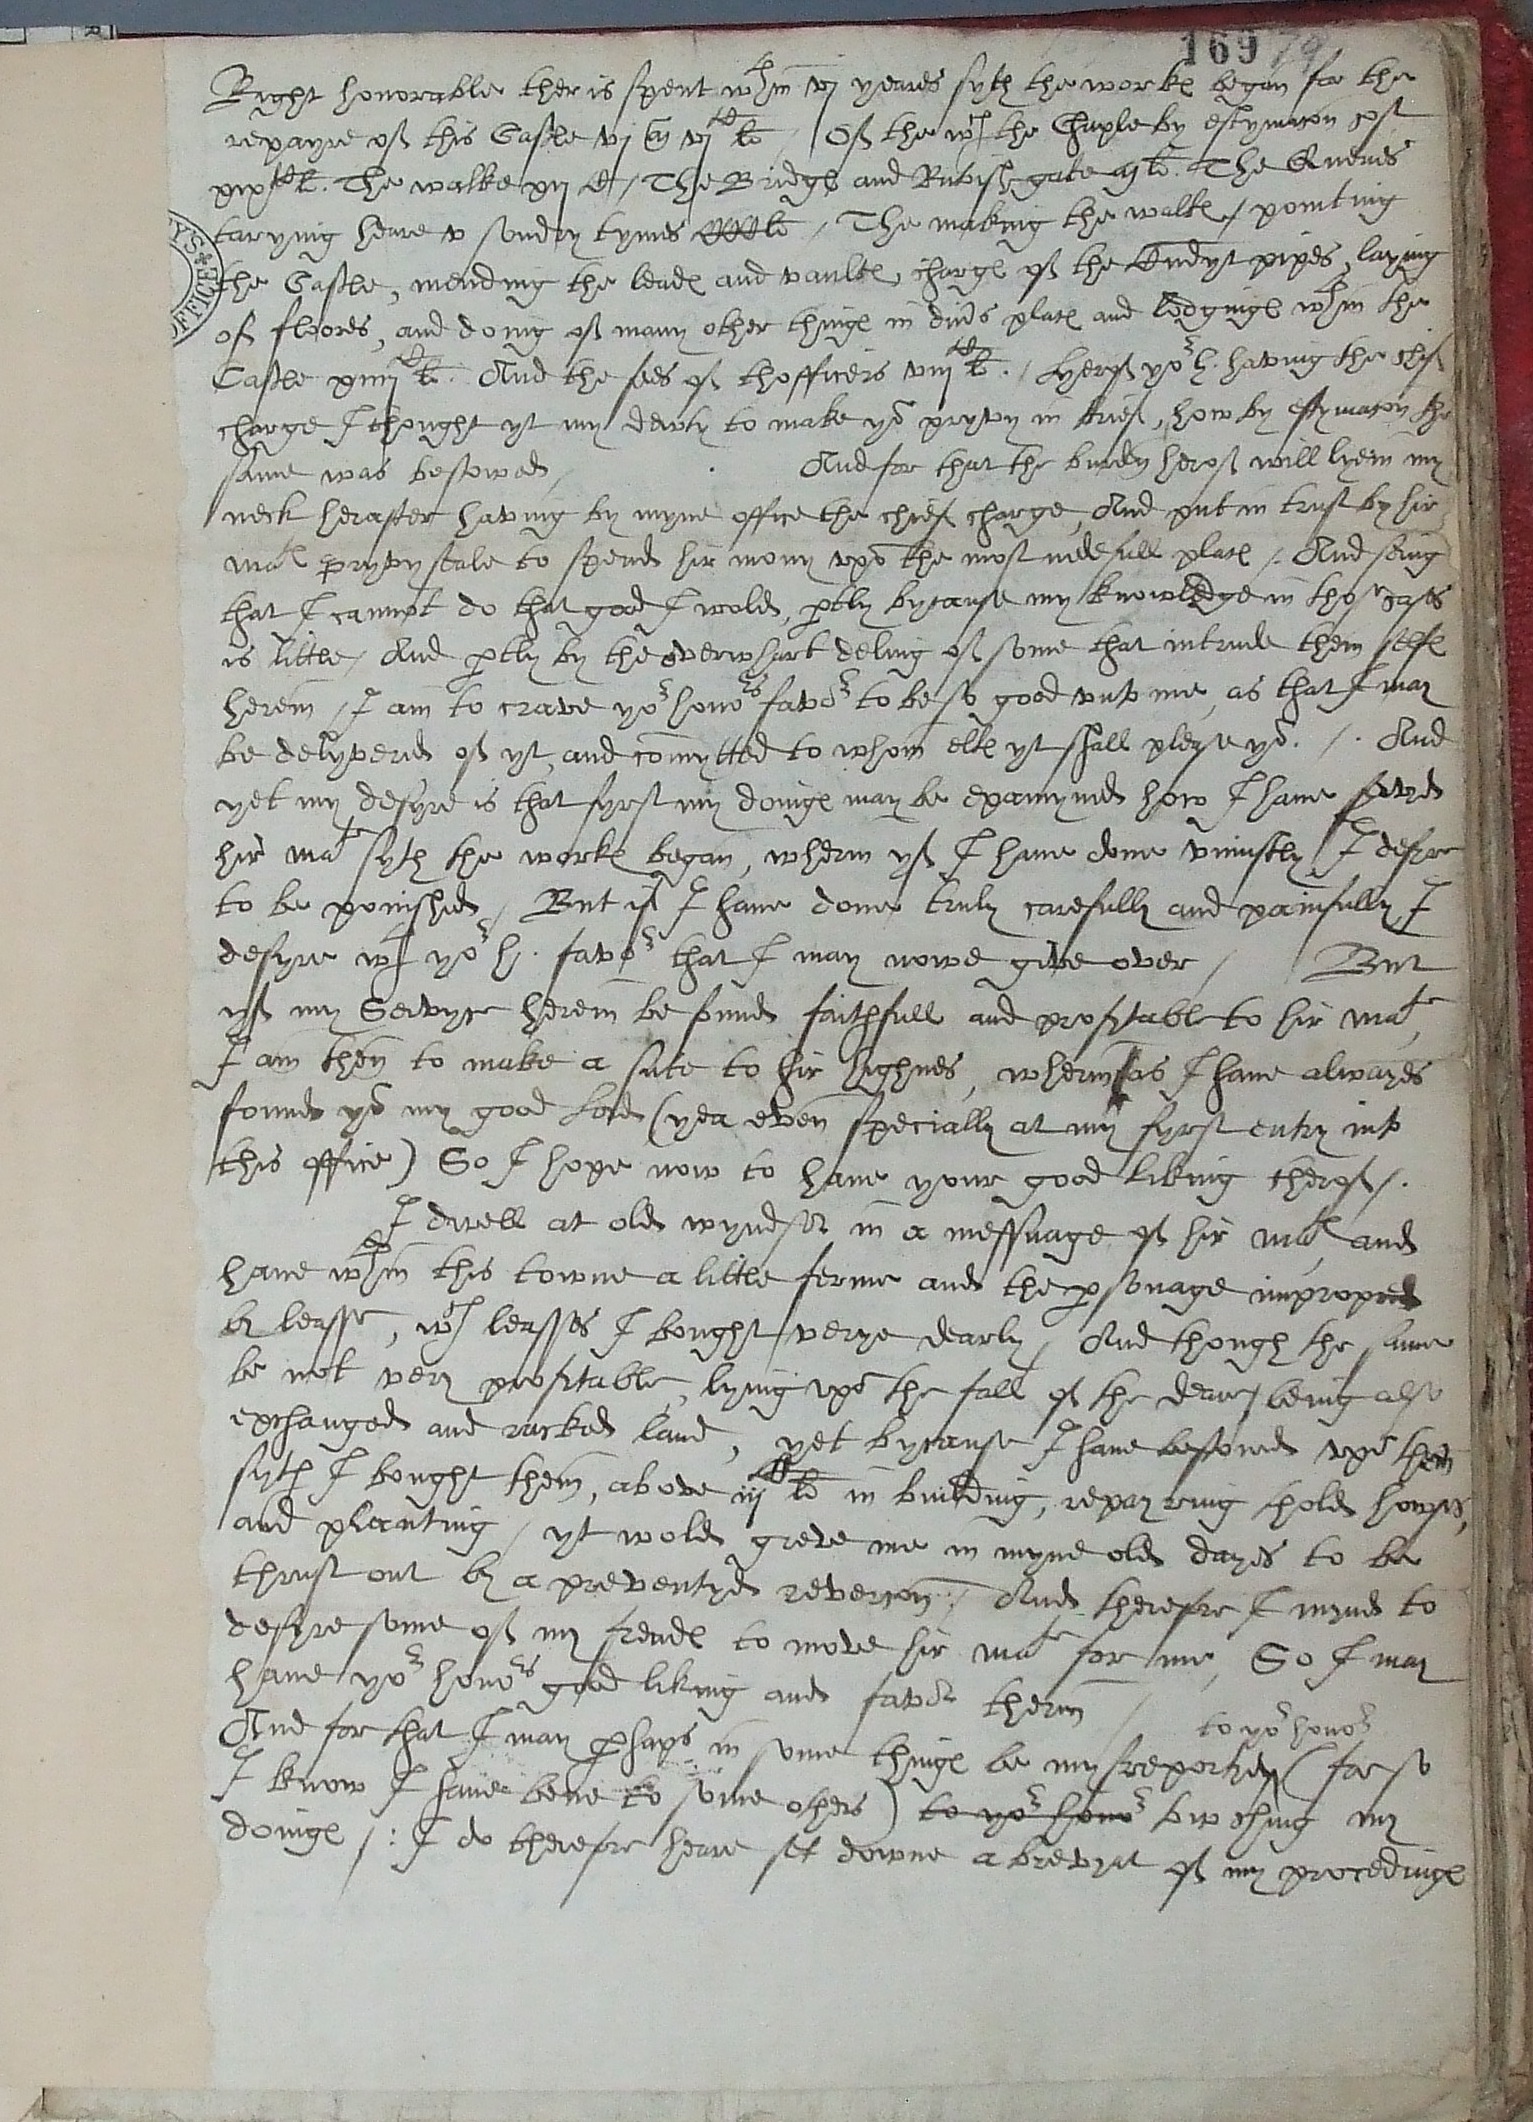 169 79
Right honorable ther is spent wthin vj yeares syth the workℯ began for the
repayre off this Castle vj m vj c li / Off the wch the Chaple by estymacon cost
The walke / The Bridge and Rubish gate The Quenes
tarying heare v sondry tymes / The making the walkℯ / pointing
the Castle, mending the leadℯ and vaultℯ, chargℯ off the Cundyt pipes, laying
off floores, and doing off many other thingℯ in divs placℯ and lodgingℯ wthin the
Castle And the fees off thofficers viij c li. / Wheroff yor h. having the chif
charge I thought yt my dewty to make yo pryvy in brieff, how by estymacon the
same was bestowed / And for that the burdyn heroff will lye in my
neck herafter having by myne office the chieff charge, And put in trust by hir
matℯ pryvy seale to spend hir mony vpo the most nedefull placℯ /. And seing
that I cannot do that good I wold, ptly bycause my knowledge in those cases
is little / And ptly by the overwhart deling off some that intrude them selfℯ
herein / I am to crave yor honors favor to be so good vnto me, as that I may
be delyvered off yt, and comytted to whom ellℯ yt shall please yo. /. And
yet my desyre is that fyrst my doingℯ may be examyned how I have served
hir matie syth the workℯ began, wherin yff I have done vniustly, I desyre
to be ponished / But if I have done truly carefully and painfully, I
desyre wth yor h. favor that I may nowe give over / But
yff my Servyce herein be found faithfull and profitable to hir matie,
I am then to make a sute to hir highnes, wherin as I have alwayes
found yo my good Lord (yea even specially at my fyrst entry into
this office) So I hope now to have your good liking theroff /.
I dwell at old wyndsor in a messuage off hir matℯ, and
have wthin this towne a little ferme and the psonage impropred
by leasse, wch leasses I bought verye dearly / And though the same
be not very profitable, lying vpo the fall off the deare / being also
exchanged and racked land, yet bycause I have bestowed vpo them
syth I bought them, above iij c li in building, repayring thold howses,
and planting / yt wold greve me in myne old dayes to be
thrust out by a preventyd revercon / And therefore I mynd to
desyre some off my frendℯ to move hir matie for me, So I may
have yor honors good liking and favor therin /
And for that I may phaps in some thingℯ be mysreportyd to yor honor (for so
I know I have bene to some others) to yor honor towching my
doingℯ /: I do therefore heare set downe a brevyat off my procedingℯ